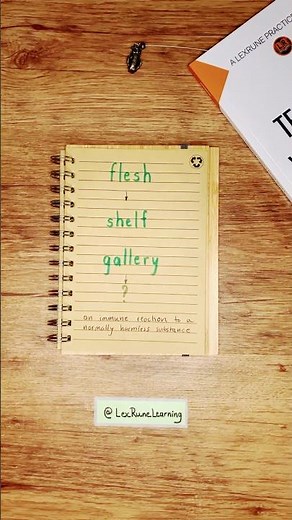 A LEXRUNE PRACTIC
TE
flesh
↓
shelf
gallery
?
an immune reaction to a
normally harmless substance
@LexRuneLearning